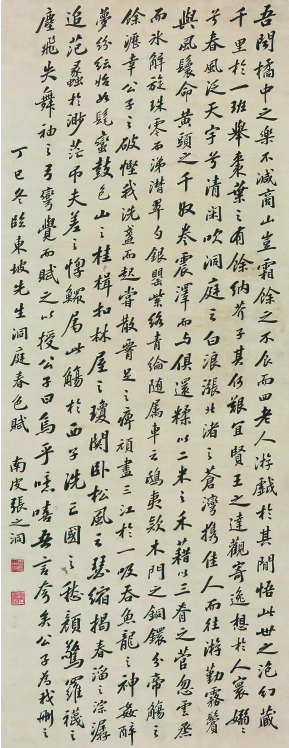 吾聞橘中之樂不減商山豈霜餘之不食而四老人游戲於其間悟此世之泡幻藏
千里於一班舉棗葉之有餘納芥子其何艱宜賢王之達觀寄逸想於人寰嫋々
兮春風泛天宇兮清閑吹洞庭之白浪漲北渚之蒼灣携佳人而往游勤霧鬢
與風鬟命黃頭之千奴卷震澤而與俱還糅以二米之禾藉以三脊之菅忽雲蒸
而冰解旋珠零而涕潸翠勺銀罌紫絡青綸随属車之鴟夷款木門之銅鐶分帝觴之
餘瀝幸公子之破慳我洗盞而起嘗散腰足之痺頑盡三江於一吸吞魚龍之神姦醉
夢紛紜始如髦蠻鼓包山之桂楫扣林屋之瓊關卧松風之瑟縮揭春溜之淙潺
追范蠡於渺茫弔夫差之惸鰥属此觴於西子洗亡國之愁顏驚羅襪之
塵飛失舞袖之弓彎覺而賦之以授公子曰烏乎噫嘻吾言夸矣公子為我刪之
丁巳冬臨東坡先生洞庭春色賦 南皮張之洞